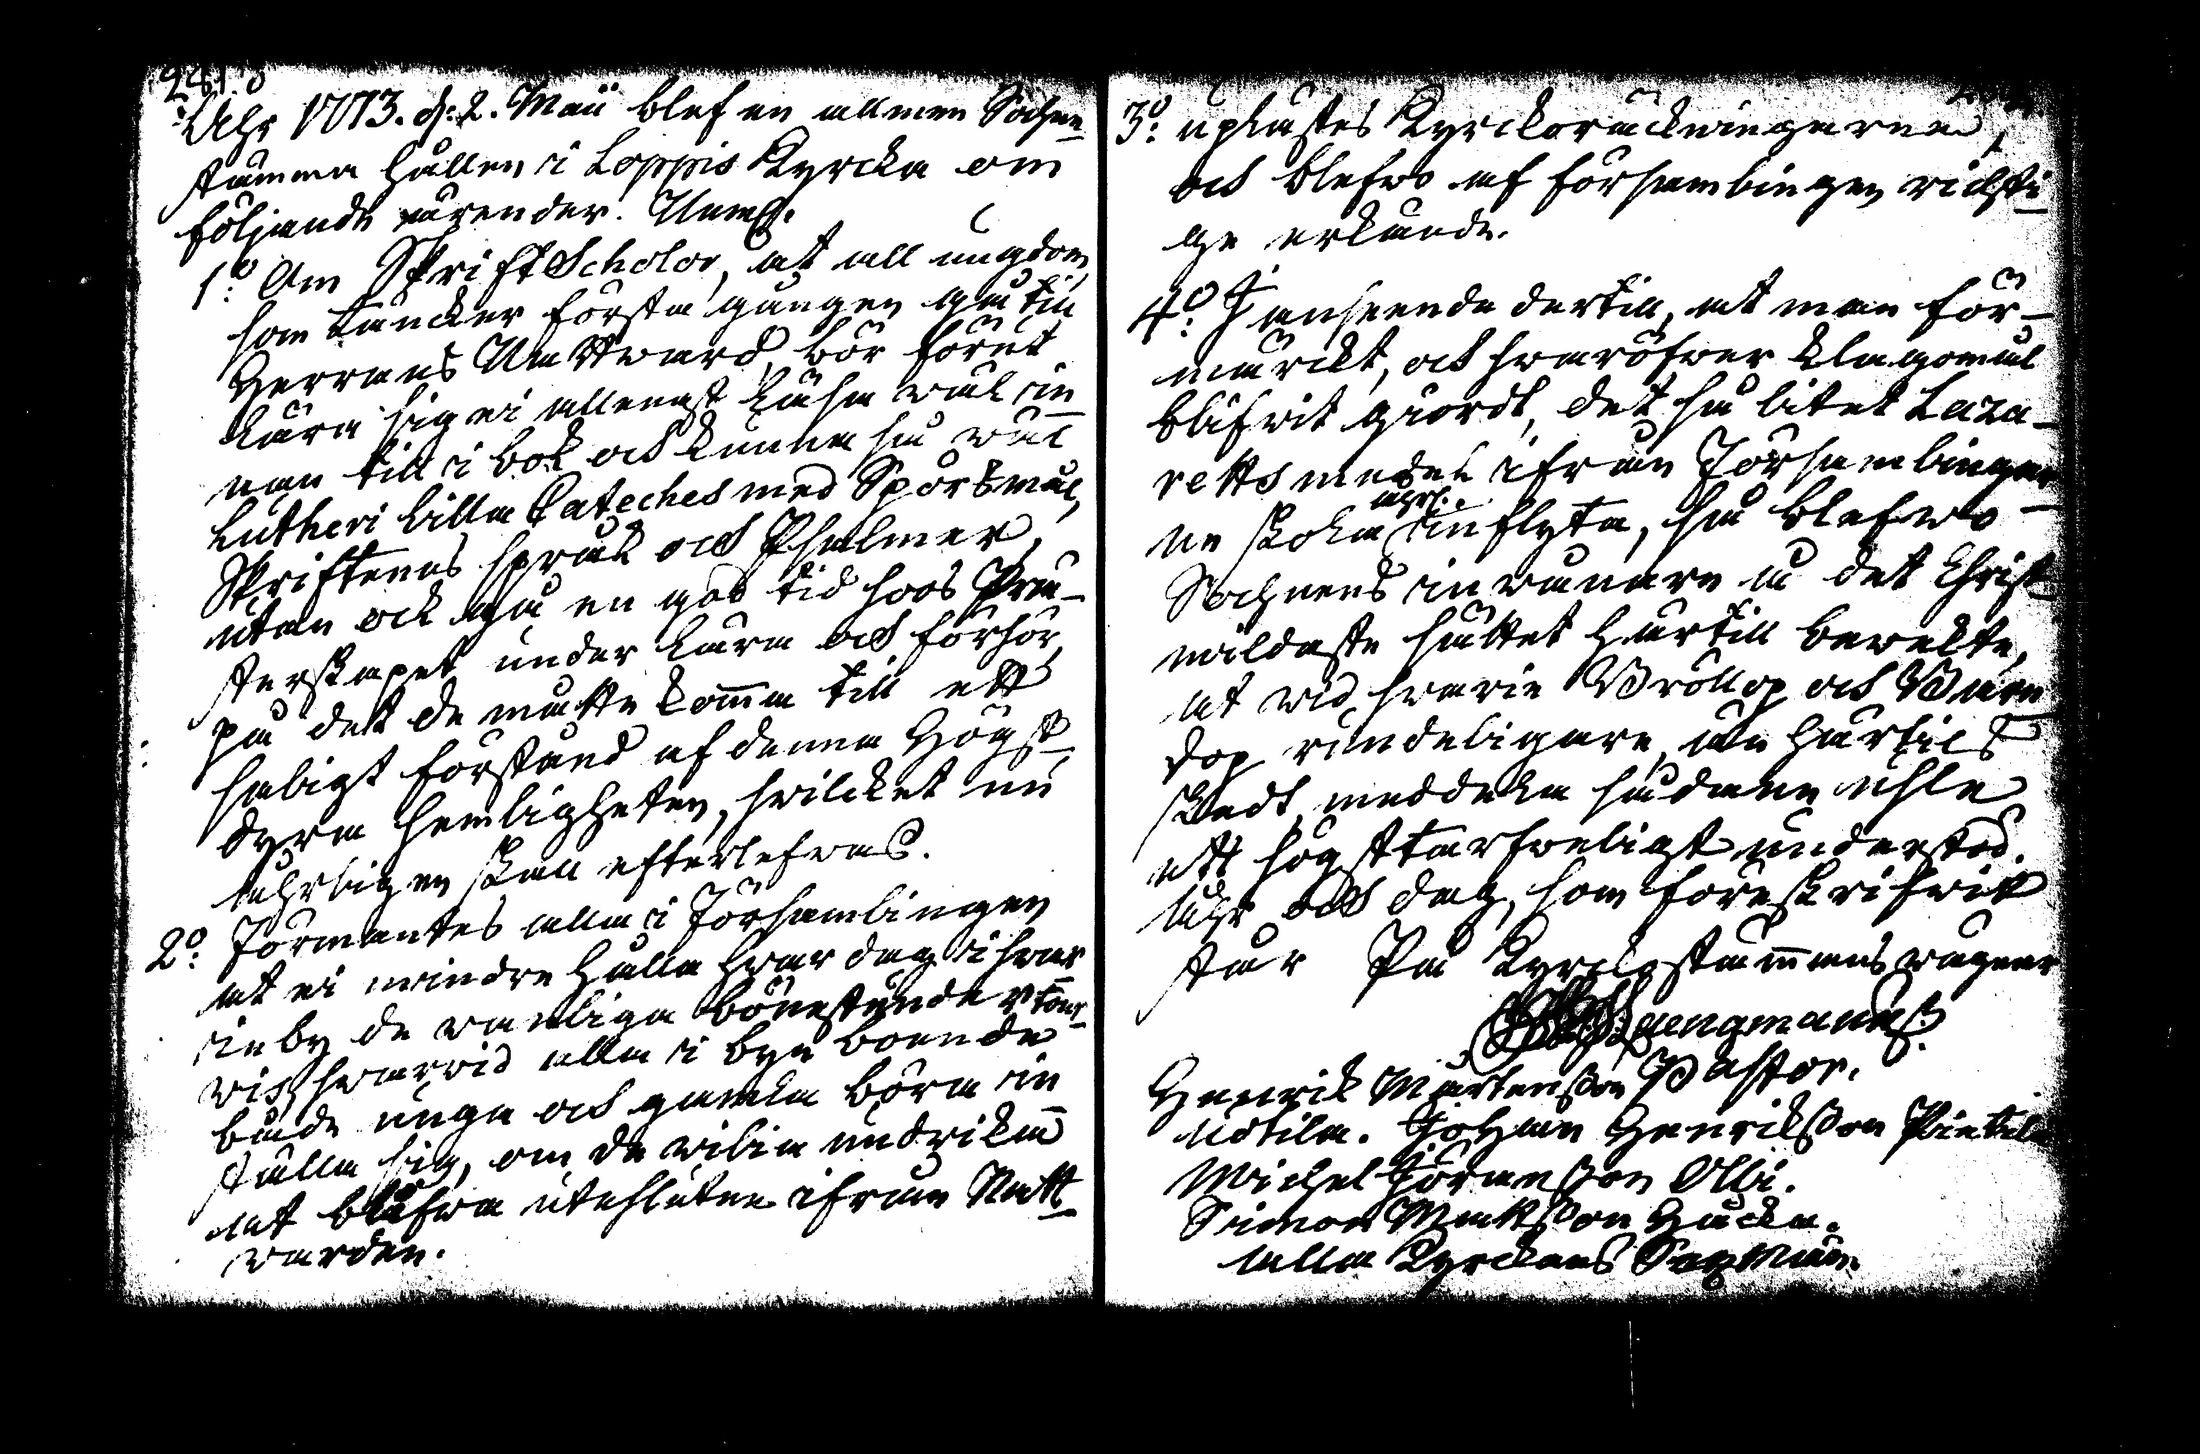 281.
Åhr 1773. d: 2. Maii blef en allmen Sochne-
stämma hållen i Loppis Kyrcka om
följande ärender. Neml.
1:o Om SkriftScholor, at all ungdom,
som täncker första gången gå till
Herrans Nattward, bör förut
lära sig ei allenast läsa wäl in-
nan till i bok och kunna så wäl
Lutheri lilla Cateches med Spörsmål,
Skriftenes språk och Psalmer,
utan ock gå en god tid hoos Prä-
sterskapet under lära och förhör,
på det de måtte kom̄a till ett
saligt förstånd af denna Högst-
dyra hemligheten, hvilcket nu
åhrligen skall efterlefwas.
2:o Förmantes alla i Församlingen
at ei mindre hålla hvar dag i hvar
sin by de wanliga bönestunder
wis, hvarvid alla i byn boende
både unga och gamla böra in
ställa sig, om de wilja undwika
at blifwa uteslutne ifrån Natt-
warden.
3:o uplästes Kyrckoräckningarne,
och blefwo af församlingen richti-
ge erkände.
4:o I anseende dertill, at man för-
märckt, och hvaröfwer klagomål
blifwit giordt, det så litet Laza-
retts medel ifrån Församlingar-
ne skola åhrl. inflyta, så blefwo
Sochnens inwånare på det Christ-
mildaste sättet härtill bewekte,
at wid hvarie Bröllop och Barn
dop rundeligare, än härtils
skedt, meddela sådane usle
ett högsttarfweligt understöd.
Åhr och dag, som föreskrifwit
står På Kyrckostäm̄ans wägnar
Pastor.
Henrik Mårtensson
Uotila. Johan Henriksson Pietilä
Michel Jöransson Olli.
Simon Mattsson Hucka.
alla Kyrckans Sexmän.